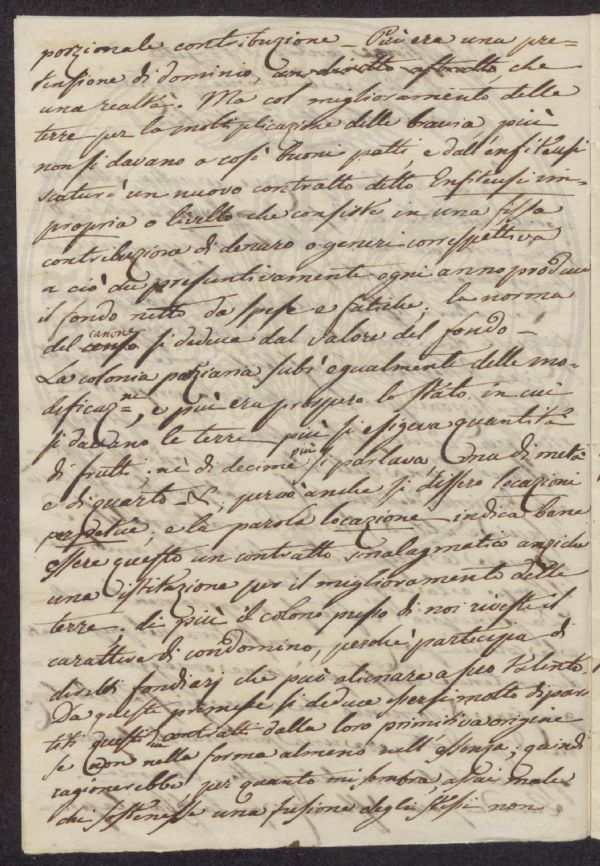 porzionale contribuzione – Più era una pre=
tensione di dominio, un diritto astratto che
una realtà. Ma col miglioramento delle
terre per la moltiplicazione delle braccia, più
non si davano a così buoni patti, e dall'enfiteusi
scaturì un nuovo contratto detto Enfiteusi im=
propria o livello che consiste in una fissa
contribuzione di denaro o generi corrispettiva
a ciò che presuntivamente ogni anno produce
il fondo netto da spese e fatiche; la norma
del canone si deduce dal valore del fondo –
La colonia parziaria subì egualmente delle mo=
dificaz=ni, e più era prospero lo stato in cui
si davano le terre più si esigeva quantità
di frutti; nè di decime più si parlava, ma di metà
e di quarto &, perciò anche si dissero locazioni
perpetue, e la parola locazione indica bene
essere questo un contratto sinalagmatico anziché
una istituzione per il miglioramento delle
terre. Di più il colono presso di noi riveste il
carattere di condomino, perchè partecipa di
diritti fondiarj che può alienare a suo talento.
Da queste premesse si deduce essersi molto dipar
titi questi due contratti dalla loro primitiva origine
se non nella forma almeno nell'essenza; quindi
ragionerebbe, per quanto mi sembra, assai male
chi sostenesse una fusione degli stessi non